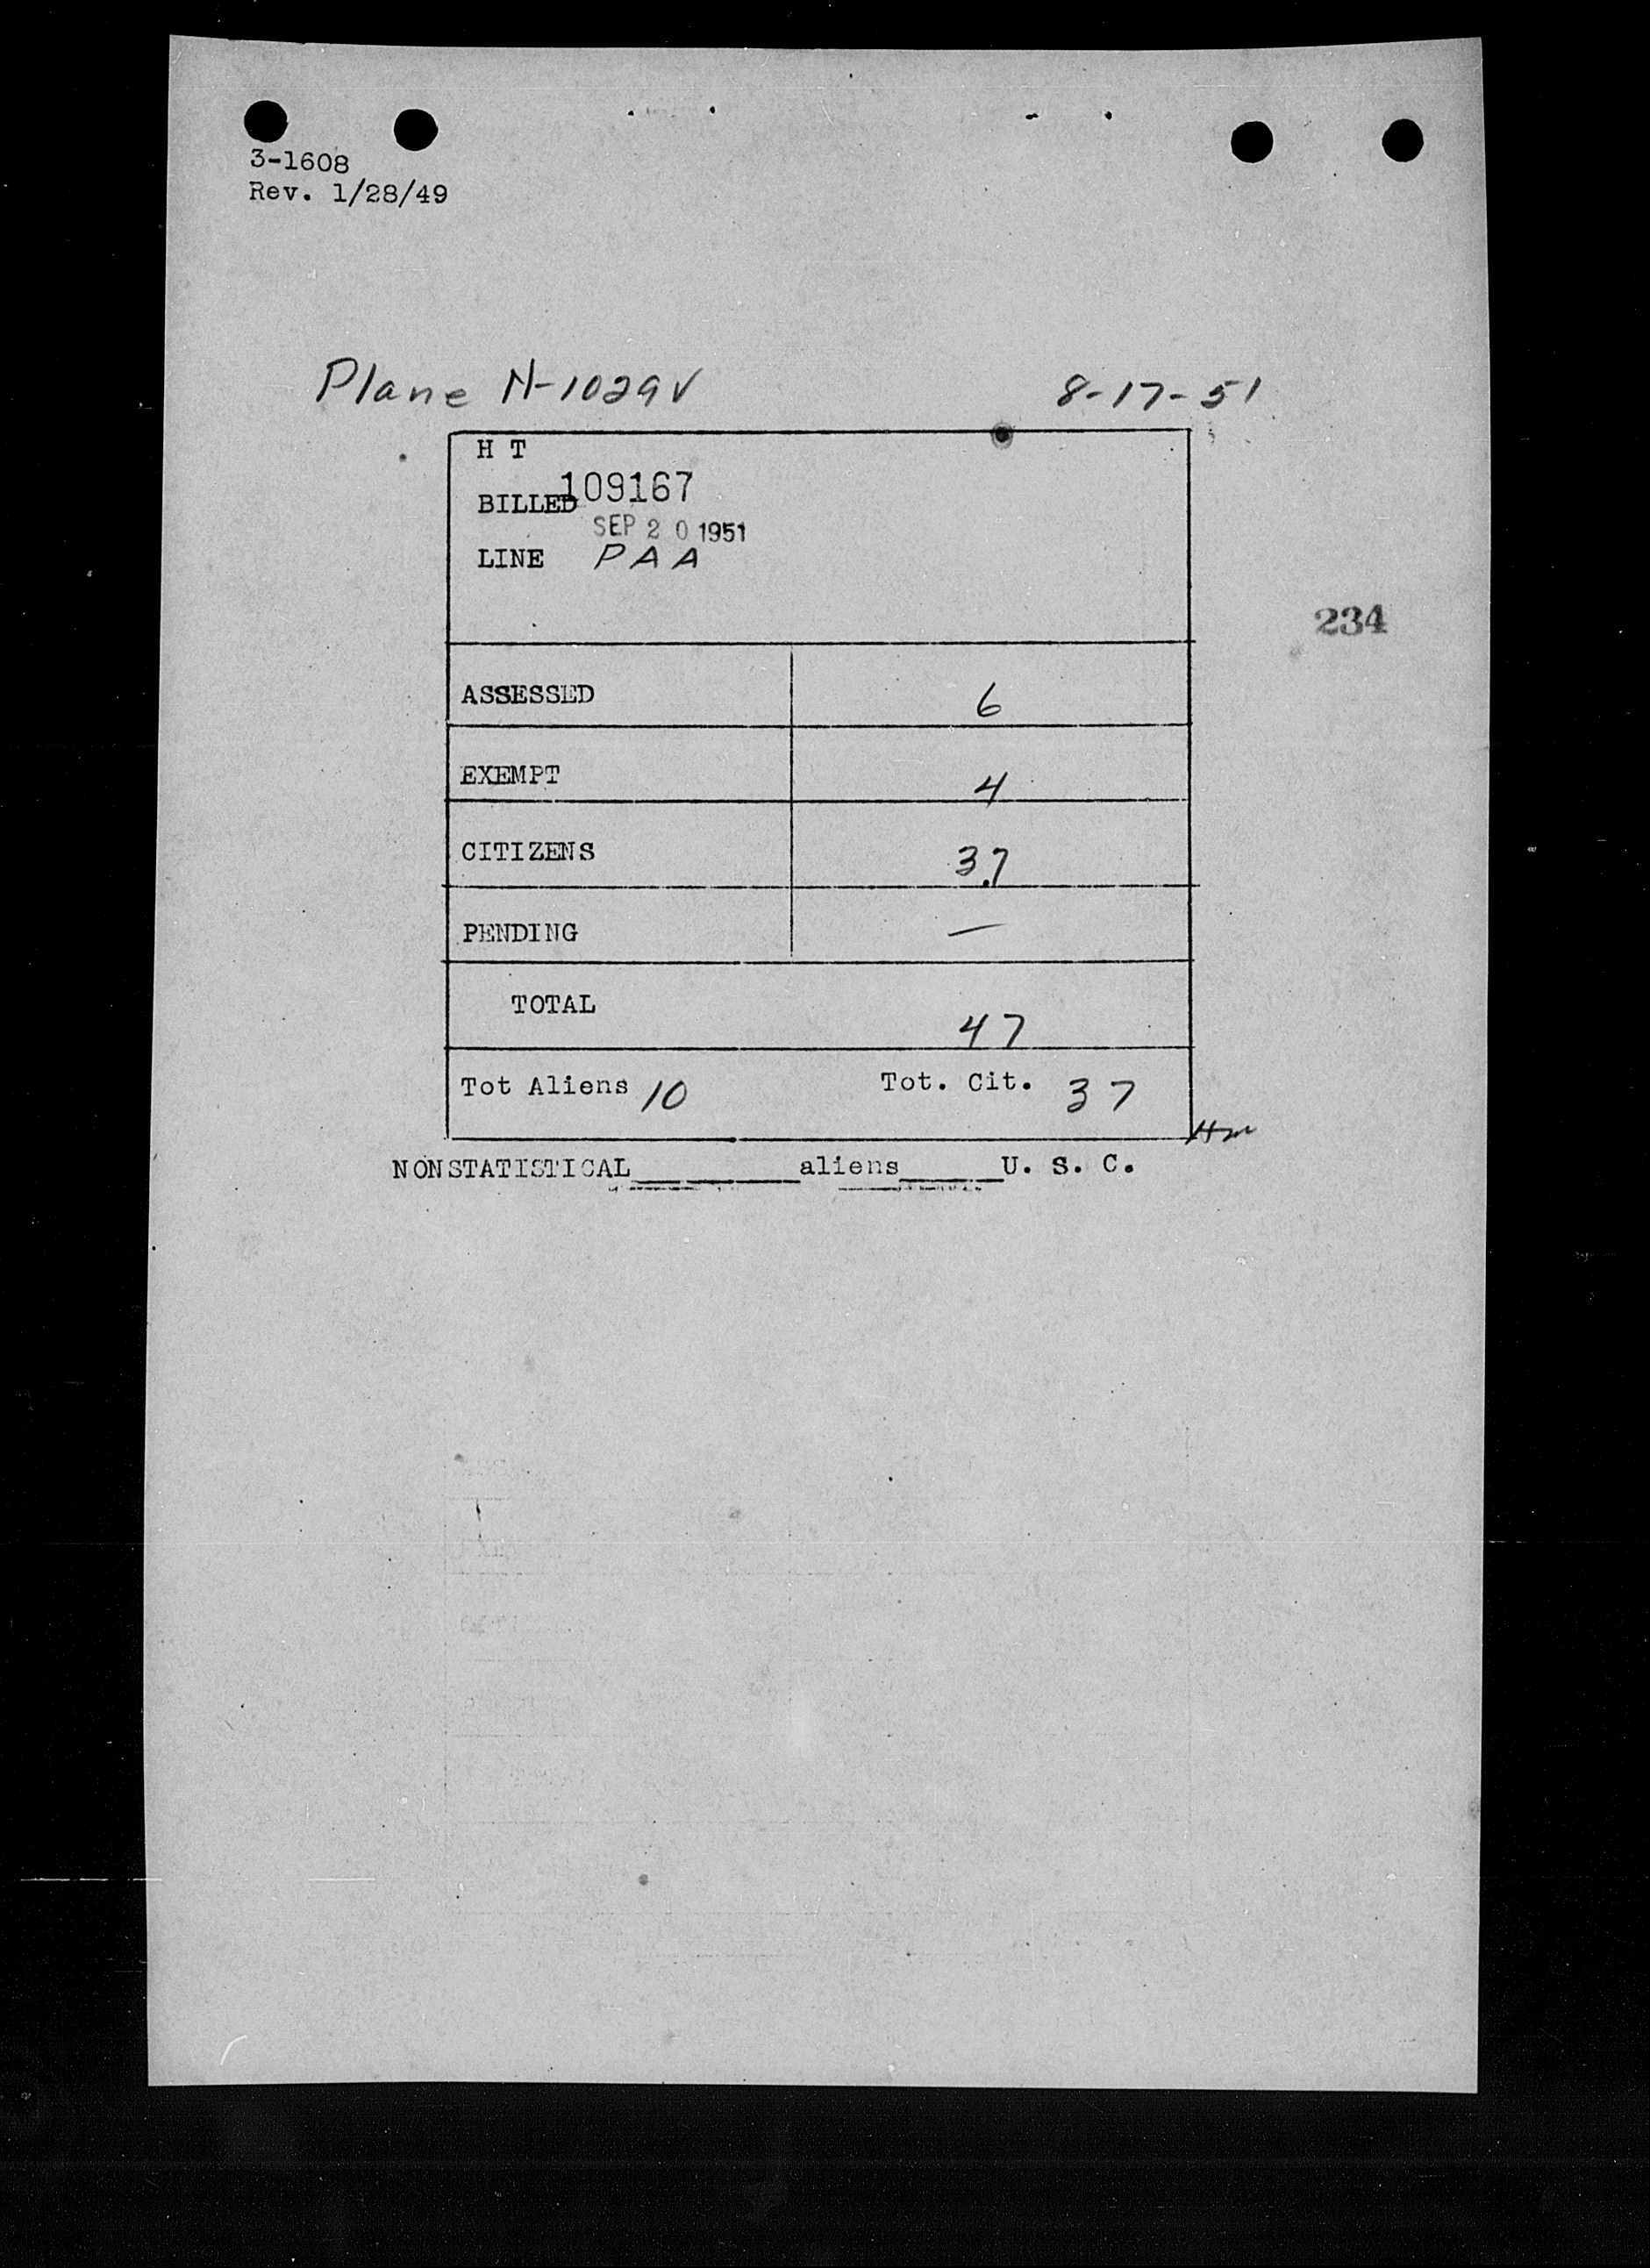 3-1608
Rev. 1/28/49
Plane N-1029V 8-17-51
H T
BILLED 109167
SEP 20 1951
LINE PAA
234
ASSESSED 6
EXEMPT 4
CITIZENS 37
PENDING —
TOTAL 47
Tot Aliens 10 Tot. Cit. 37
NONSTATISTICAL________aliens_____U. S. C.